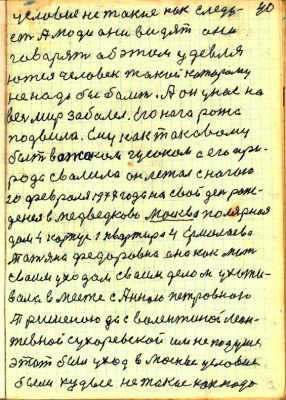 40
условие не такие как следу-
ет А люди они видят они
говорят об этом удевля
ются человек такий которому
не надо бы болит. А он у нас на
вех мир забалел. Его нага рожа
подвила. Ему как таковому
быт в таком а его при-
рода свалила он лежал с нагою
20 февраля 1977 года на свой ден рож-
дения в Медведково Москва полярная
дом 4 карпус 1 квартира 4 Ермолаева
Татяна федоровна она как мат
своим уходам своим делом ухажи-
вала в месте с Анною петровною
да с валентиной леон-
тевной сухаревской им не подуше
этот был уход в Москве условие
были худые не такие как надо